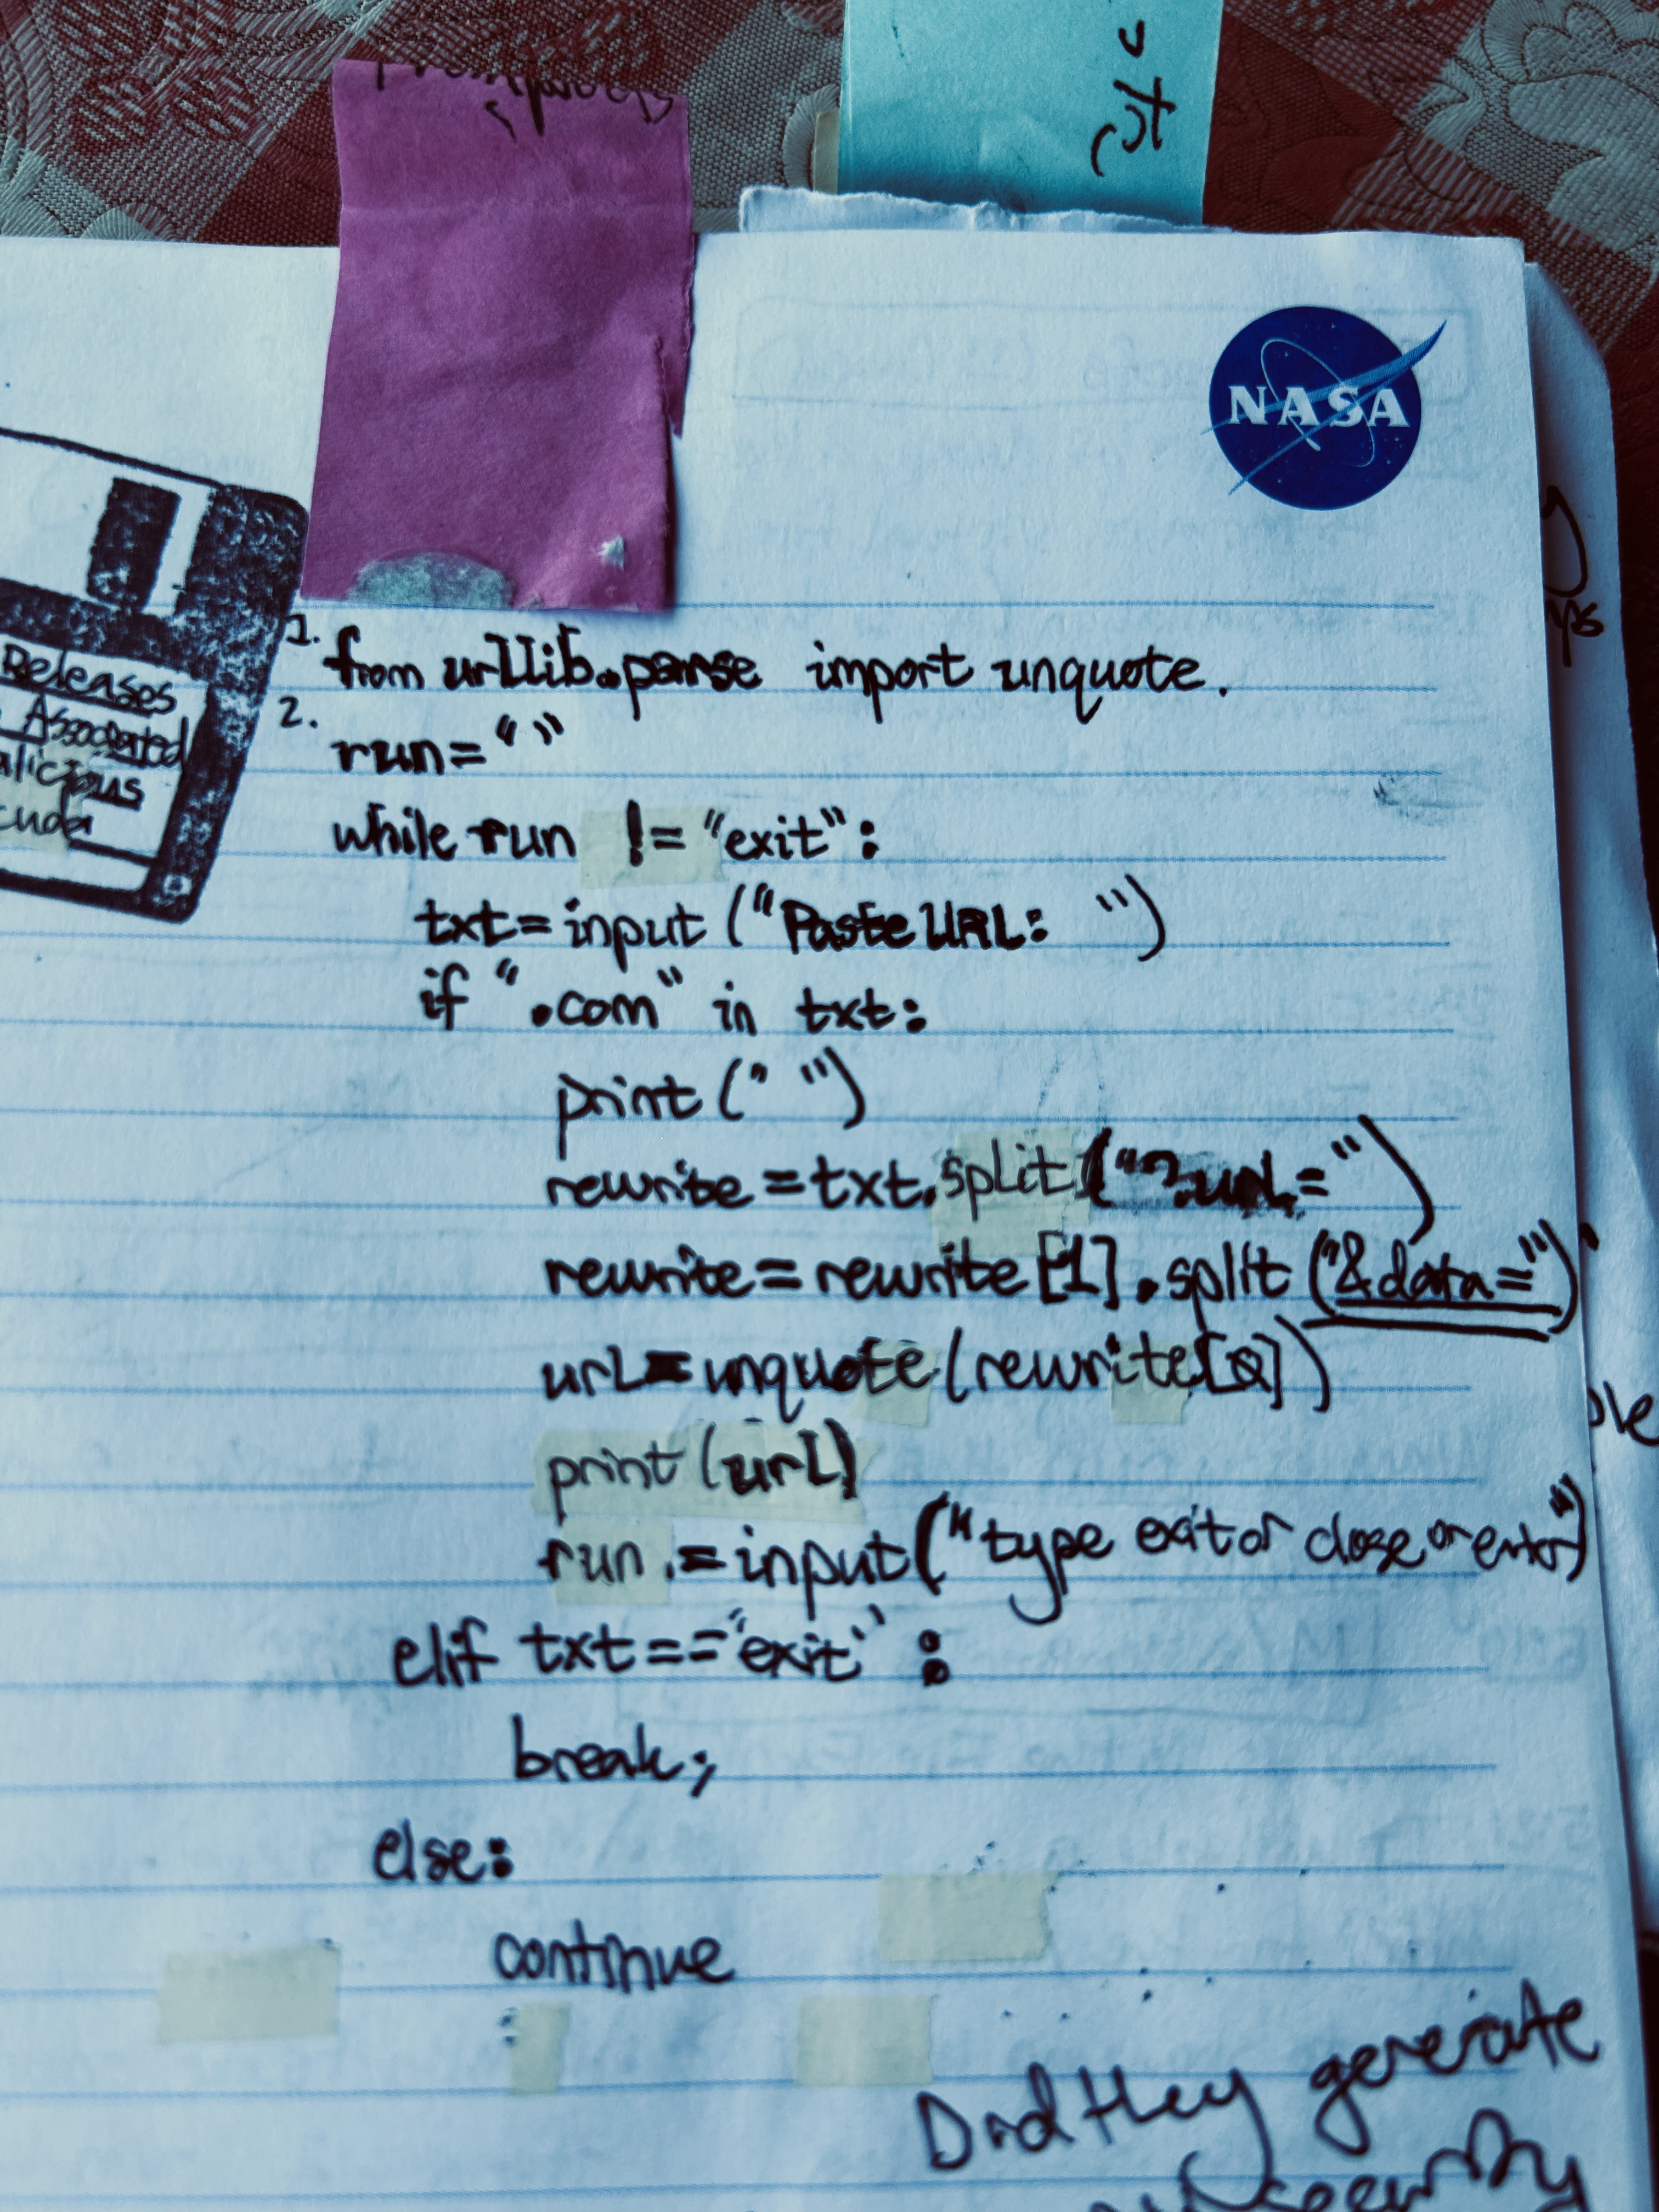 NASA
Releases
Associated
1. from urllib.parse import unquote.
2. run=“ ”
while run != “exit”:
txt=input (“Paste URL: ”)
if “.com” in txt:
print (“ ”)
rewrite =txt.split (“?url=”)
rewrite = rewrite [1] .split (“&data=”)
url=unquote (rewrite[0])
print (url)
run = input (“type exit or close or enter”)
elif txt == “exit” :
break;
else:
continue
Did they generate